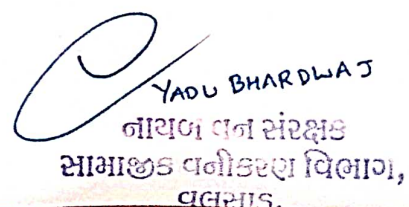 YADU BHARDWAJ
નાયબ વન સંરક્ષક
સામાજીક વનીકરણ વિભાગ,
વલસાડ.